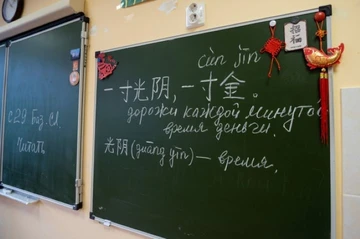 с 29 Баз. сл.
Читать
cùn jīn
一寸光阴,一寸金。
дорожи каждой минутой
время деньги.
光阴 (guāng yīn) — время.